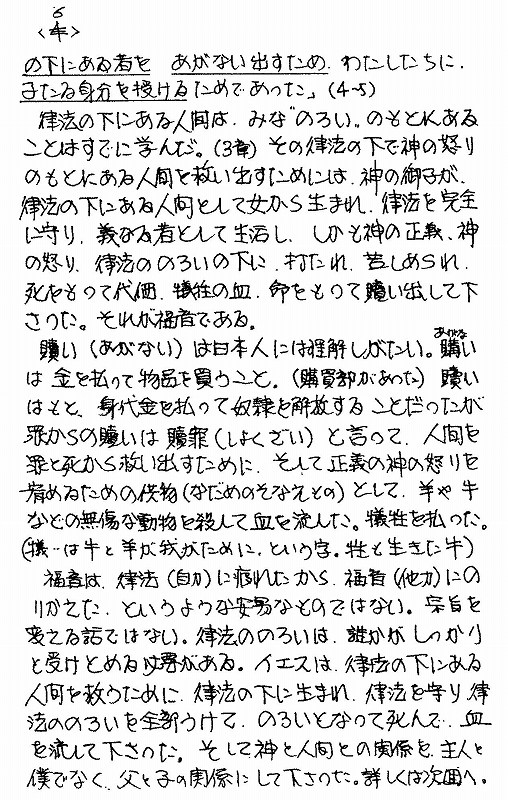 6
<年>
の下にある者を あがない出すため、わたしたちに、
子たる身分を授けるためであった。」(4-5)
律法の下にある人間は、みな"のろい"のもとにある
ことはすでに学んだ。(3章) その律法の下で神の怒り
のもとにある人間を救い出すためには、神の御子が、
律法の下にある人間として女から生まれ、律法を完全
に守り、義なる者として生活し、しかも神の正義、神
の怒り、律法ののろいの下に、打たれ、苦しめられ、
死をもって代価、犠牲の血、命をもって贖い出して下
さった。それが福音である。
贖い(あがない)は日本人には理解しがたい。購い(あがな)
は 金を払って物品を買うこと。(購買部があった) 贖い
はもと、身代金を払って奴隷を解放することだったが
罪からの贖いは 贖罪(しょくざい) と言って、人間を
罪と死から救い出すために、そして正義の神の怒りを
宥めるための供物(なだめのそなえもの)として、羊や牛
などの無傷な動物を殺して血を流した。犠牲を払った。
(犠…は牛と羊が我がために、という字。牲も生きた牛)
福音は、律法(自力)に疲れたから、福音(他力)にの
りかえた、というような安易なものではない。宗旨を
変える話ではない。律法ののろいは、誰かがしっかり
と受けとめる必要がある。イエスは、律法の下にある
人間を救うために、律法の下に生まれ、律法を守り、律
法ののろいを全部うけて、のろいとなって死んで、血
を流して下さった。そして神と人間との関係を、主人と
僕でなく、父と子の関係にして下さった。詳しくは次回へ。